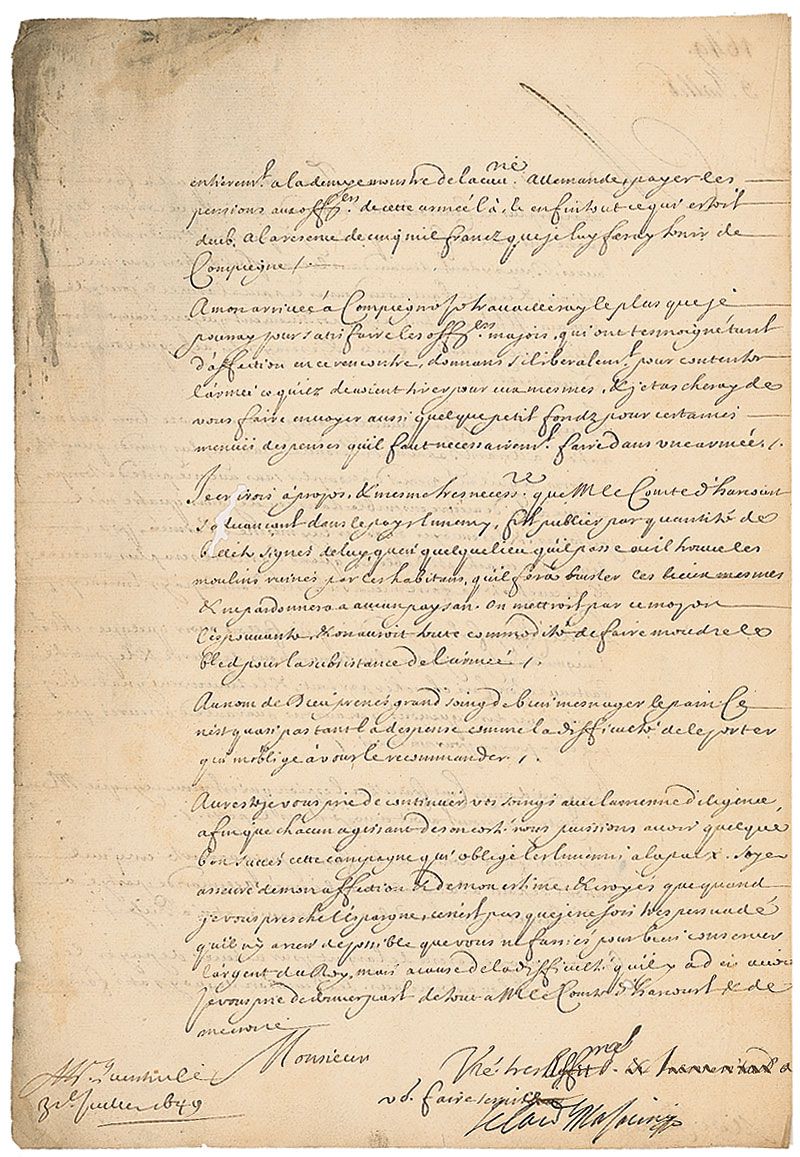 entierem.t a la demye monstre de la cava.rie Allemande, payer les
pensions aux off.ers de cette armée là, & enfin tout ce qui estoit
deub, a la reserve de cinq mil francz que je luy feray tenir de
Compiegne /.
A mon arrivée à Compiegne je travailleray le plus que je
pourray pour satisfaire les off.ers majors, qui ont tesmoigné tant
d'affection en ce rencontre, donnans si liberalem.t pour contenter
l'armée ce qu'ilz devoient tirer pour eux mesmes, & je tascheray de
vous faire envoyer aussi quelque petit fondz pour certaines
menues despenses qu'il faut necessairem.t faire dans une armée. /.
Je croirois à propos, & mesme tres necess.re que M. le Comte d'harcourt
s'avancant dans le pays Ennemy, fist publier par quantité de
billets signés de luy, qu'en quelque lieu qu'il passe ou il trouve les
moulins ruinés par les habitans, qu'il fera brusler les lieux mesmes
& ne pardonnera a aucun paysan. On mettroit par ce moyen
l'espouvante, & on auroit toute commodité de faire moudre le
bled pour la subsistance de l'armée /.
Au nom de Dieu prenés grand soing de bien mesnager le pain Ce
n'est quasi pas tant la despense comme la difficulté de le porter
qui m'oblige à vous le recommander. /.
Au reste je vous prie de continuer vos soings avec la mesme diligence,
afin que chacun agissant de son costé nous puissions avoir quelque
bon succés cette campagne qui oblige les Ennemis a la paix. Soyez
asseuré de mon affection & de mon estime, & croyés que quand
je vous presche l'espargne, ce n'est pas que je ne sois tres persuadé
qu'il n'y a rien de possible que vous ne fassiés pour bien conserver
l'argent du Roy, mais a cause de la difficulté qu'il y a d'en avoir
Je vous prie de donner part de tout a M. le Comte d'harcourt & de
me croire
Monsieur
Vre. tres
3.e Juillet 1649
v.s faire service
Le Card Mazarini